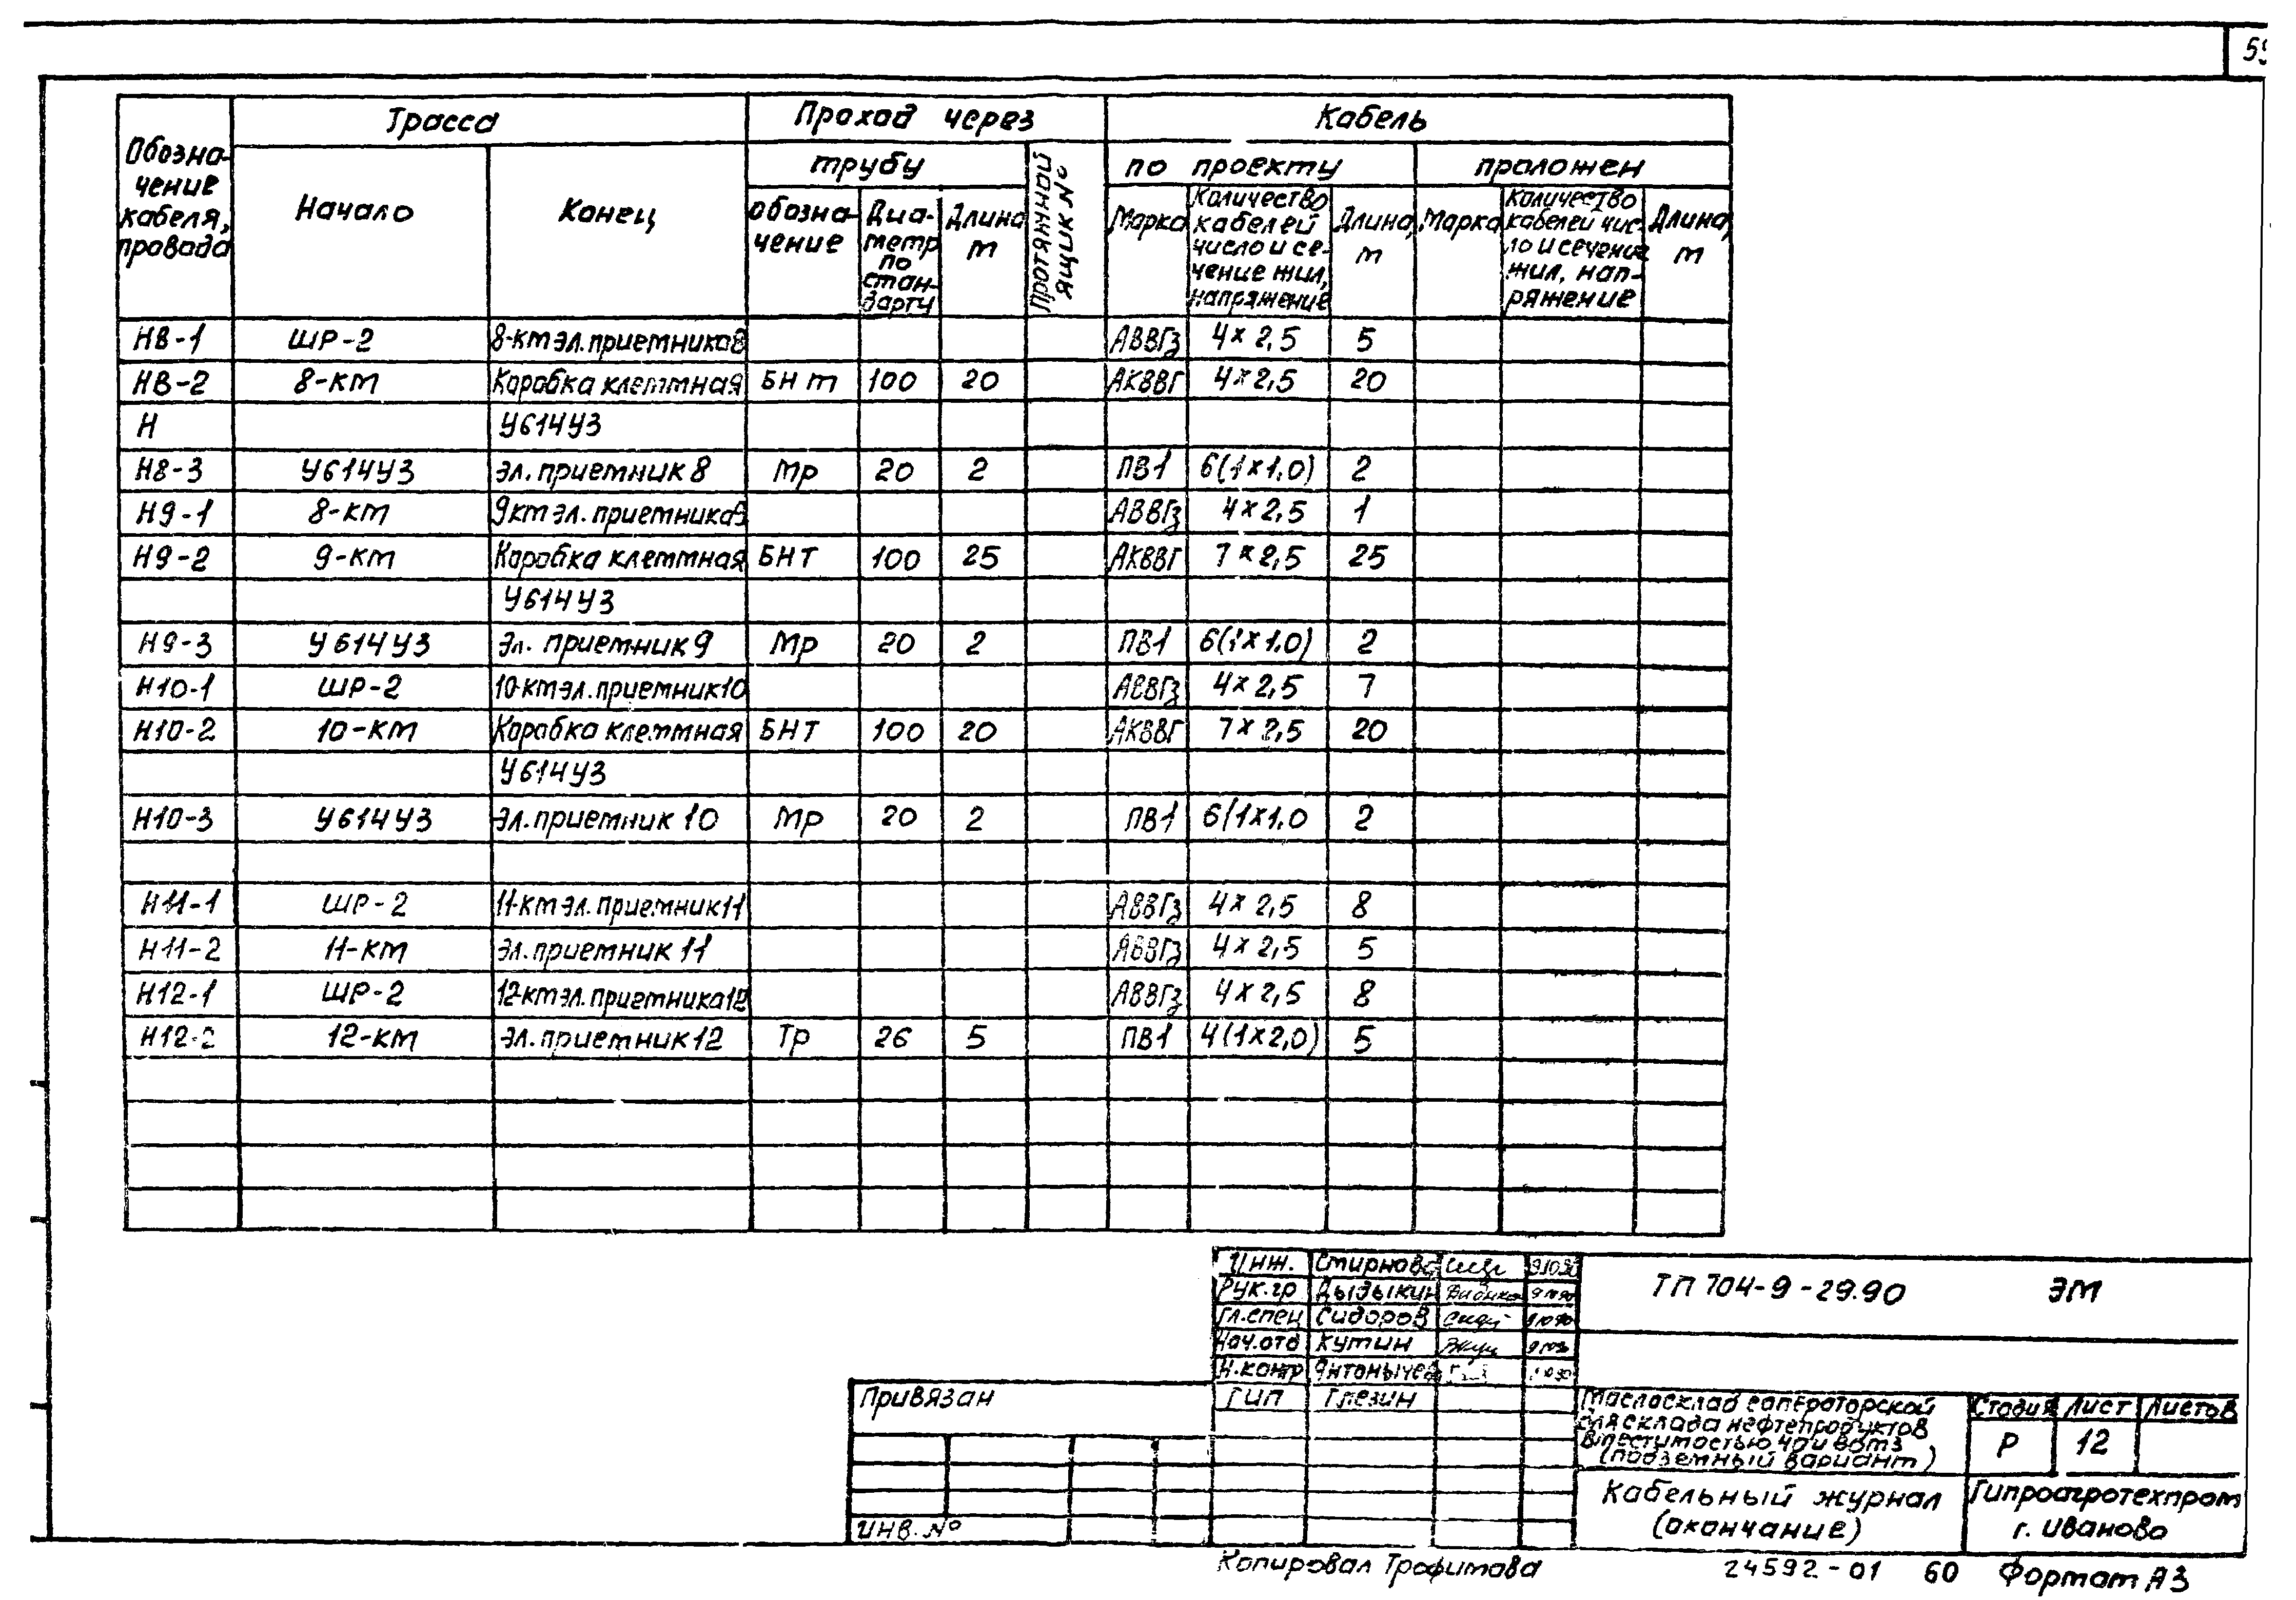 Трасса
Проход через
Кабель
Обозна-
чение
кабеля,
провода
Начало
Конец
трубу
Протяжной
ящик №
по проекту
проложен
Обозна-
чение
Диа-
метр
по
стан-
дарту
Длина
м
Марка
Количество
кабелей
число и се-
чение жил,
напряжение
Длина,
м
Марка
Количество
кабелей чис-
ло и сечение
жил, нап-
ряжение
Длина,
м
Н8-1 ШР-2 8-км эл.приемника 8 АВВГз 4х2,5 5
Н8-2 8-км Коробка клеммная БНт 100 20 АКВВГ 4х2,5 20
Н У614У3
Н8-3 У614У3 Эл. приемник 8 Мр 20 2 ПВ1 6(1х1,0) 2
Н9-1 8-км 9км эл. приемника 9 АВВГз 4х2,5 1
Н9-2 9-км Коробка клеммная БНТ 100 25 АКВВГ 7х2,5 25
У614У3
Н9-3 У614У3 Эл. приемник 9 Мр 20 2 ПВ1 6(1х1,0) 2
Н10-1 ШР-2 10-км эл.приемник 10 АВВГз 4х2,5 7
Н10-2 10-км Коробка клеммная БНТ 100 20 АКВВГ 7х2,5 20
У614У3
Н10-3 У614У3 Эл.приемник 10 Мр 20 2 ПВ1 6(1х1,0 2
Н11-1 ШР-2 11-км эл. приемник 11 АВВГз 4х2,5 8
Н11-2 11-км Эл.приемник 11 АВВГз 4х2,5 5
Н12-1 ШР-2 12-км эл. приемника 12 АВВГз 4х2,5 8
Н12-2 12-км Эл. приемник 12 Тр 26 5 ПВ1 4(1х2,0) 5
Инж. Смирнова
Рук.гр Дыдыкин
Гл.спец Сидоров
Нач.отд Кутин
Н.контр Антонычев
ГИП Глезин
ТП 704-9-29.90 ЭМ
Привязан
Инв. №
Маслосклад с операторской
для склада нефтепродуктов
вместимостью
(подземный вариант)
Стадия Лист Листов
Р 12
Кабельный журнал
(окончание)
Гипроагротехпром
г. Иваново
Копировал Трофимова
24592-01 60 Формат А3